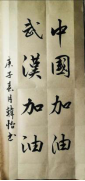 中國加油
武漢加油
庚子春月韓怡书